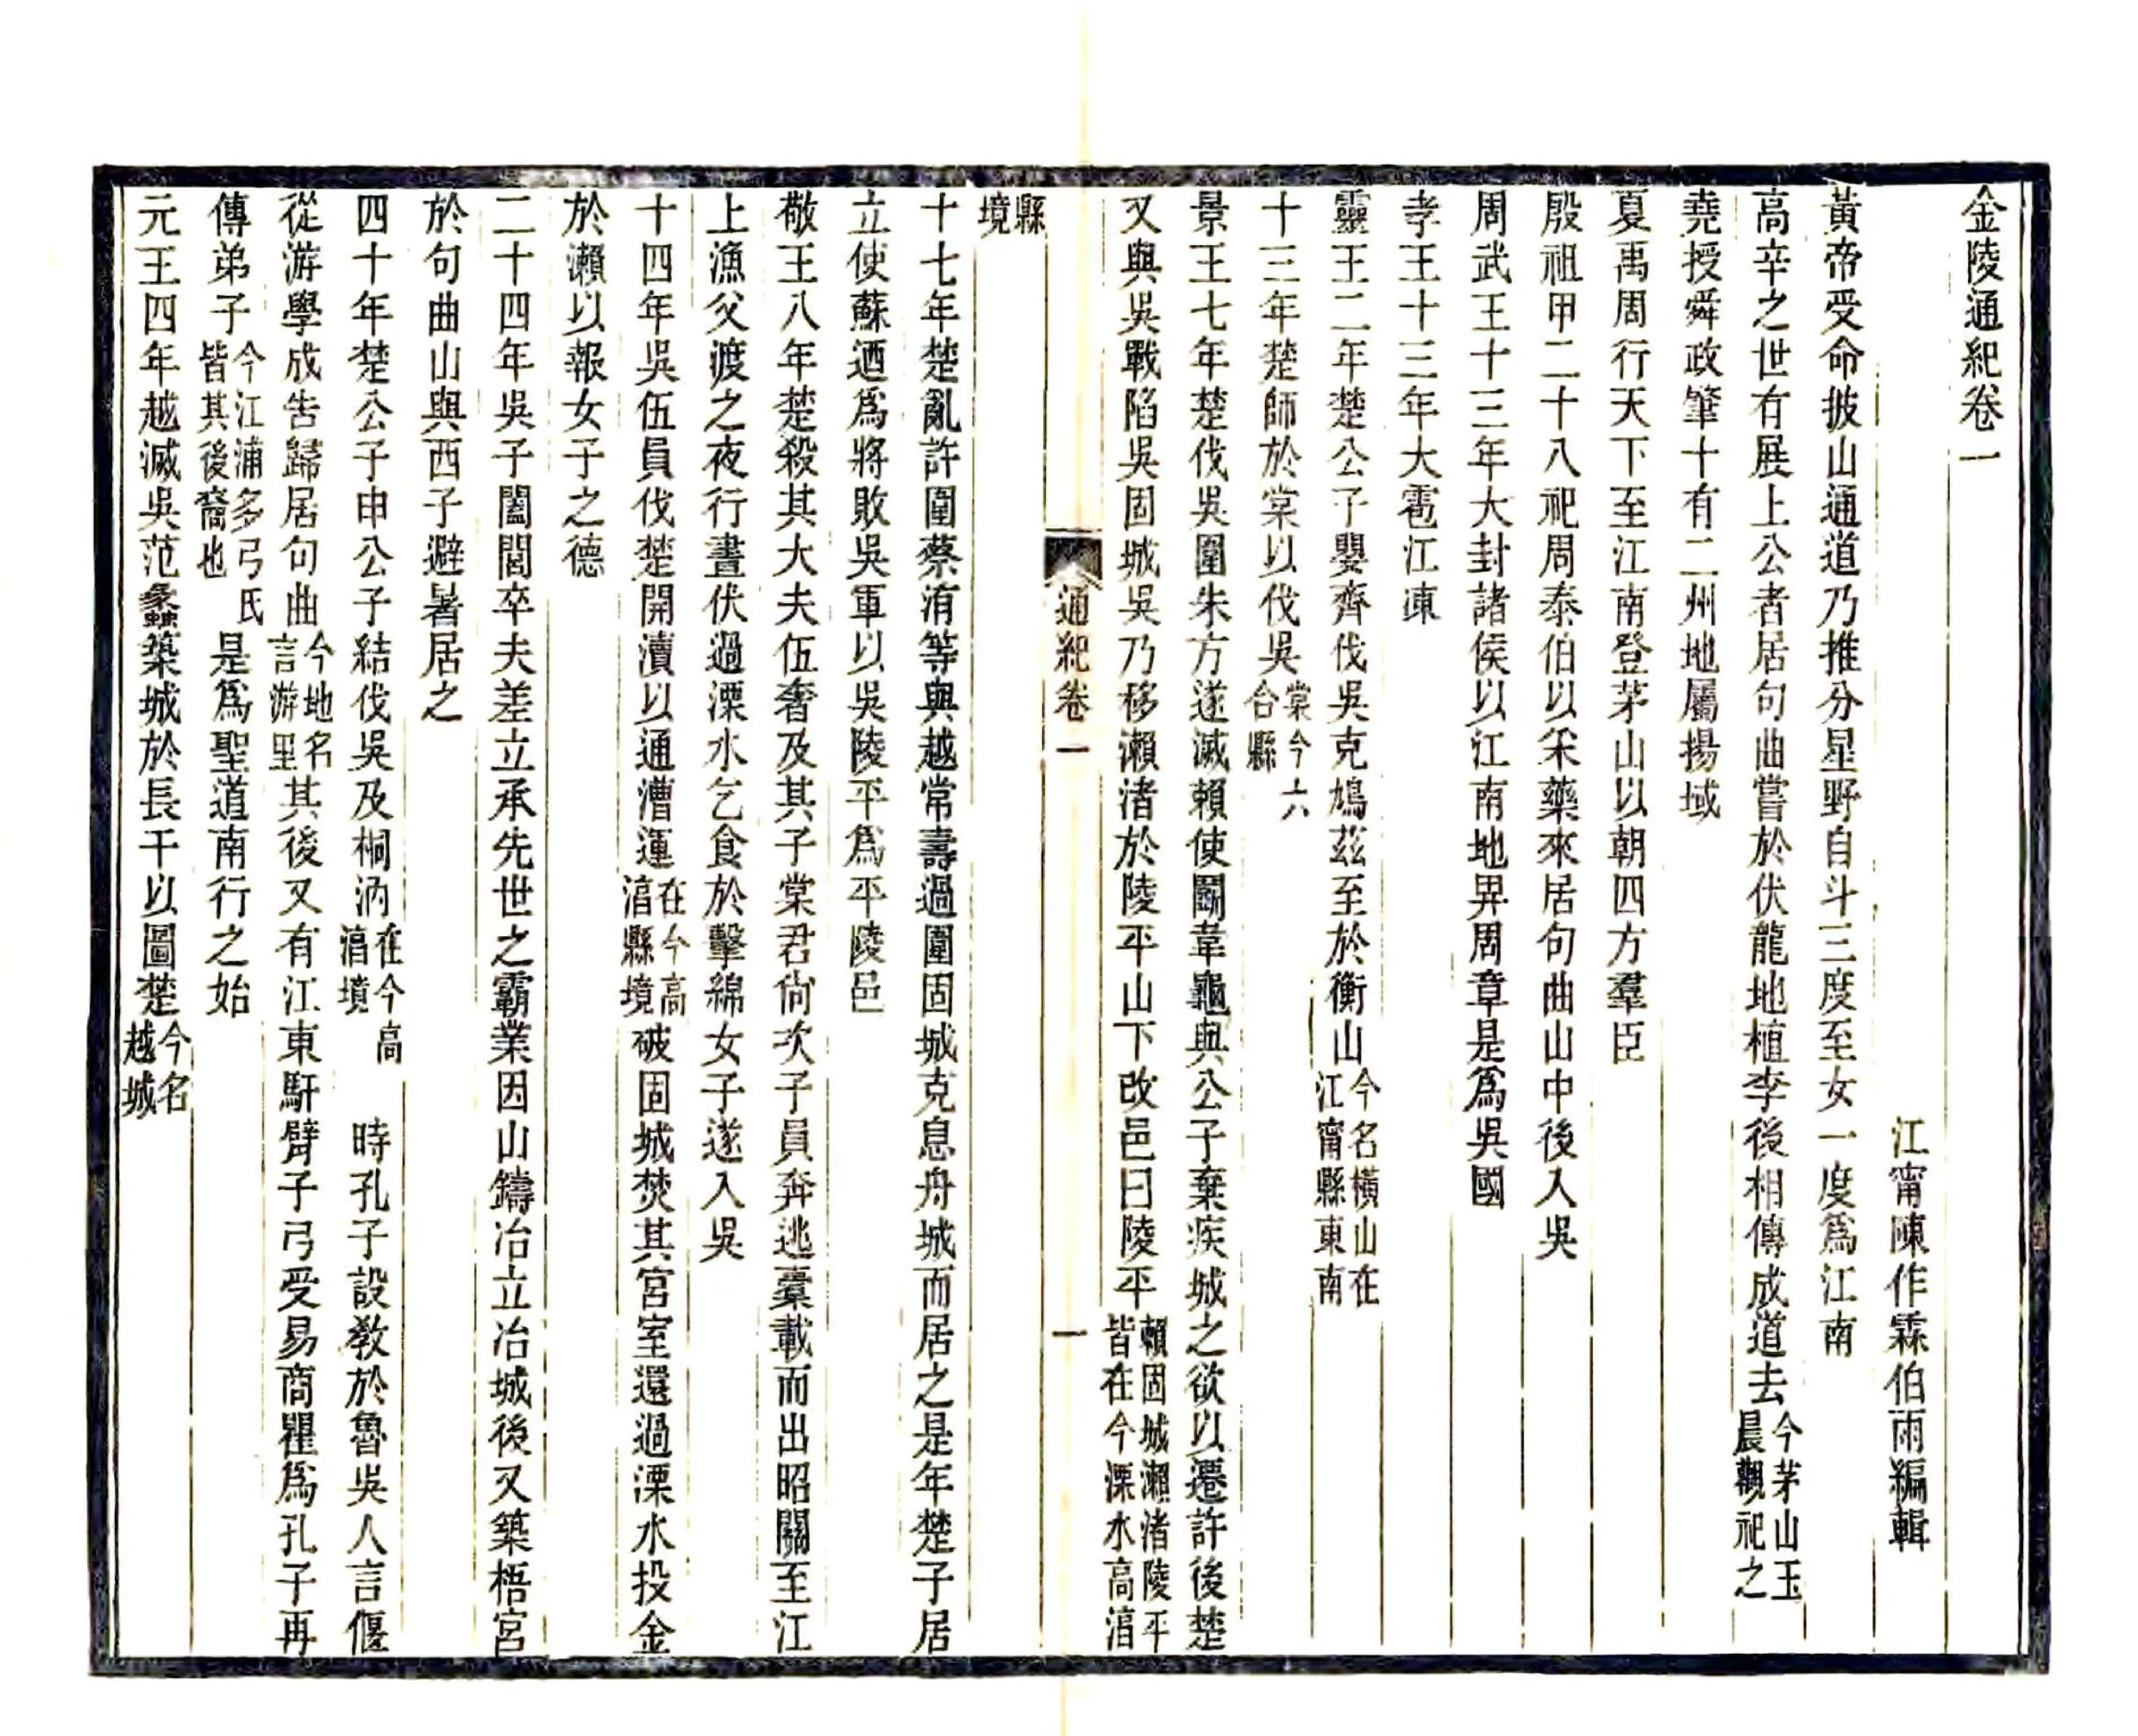 金陵通紀卷一
江甯陳作霖伯雨編輯
黃帝受命披山通道乃推分星野自斗三度至女一度爲江南
高辛之世有展上公者居句曲嘗於伏龍地植李後相傳成道去今茅山玉晨觀祀之
堯授舜政肇十有二州地屬揚域
夏禹周行天下至江南登茅山以朝四方羣臣
殷祖甲二十八祀周泰伯以采藥來居句曲山中後入吳
周武王十三年大封諸侯以江南地畀周章是爲吳國
孝王十三年大雹江凍
靈王二年楚公子嬰齊伐吳克鳩茲至於衡山今名橫山在江甯縣東南
十三年楚師於棠以伐吳棠今六合縣
景王七年楚伐吳圍朱方遂滅賴使鬭韋龜與公子棄疾城之欲以遷許後楚
又與吳戰陷吳固城吳乃移瀨渚於陵平山下改邑曰陵平賴固城瀨渚陵平皆在今溧水高湻
縣境
通紀卷一
一
十七年楚亂許圍蔡洧等與越常壽過圍固城克息舟城而居之是年楚子居
立使蘇迺爲將敗吳軍以吳陵平爲平陵邑
敬王八年楚殺其大夫伍奢及其子棠君尙次子員奔逃橐載而出昭關至江
上漁父渡之夜行晝伏過溧水乞食於擊綿女子遂入吳
十四年吳伍員伐楚開瀆以通漕運在今高湻縣境破固城焚其宮室還過溧水投金
於瀨以報女子之德
二十四年吳子闔閭卒夫差立承先世之霸業因山鑄冶立冶城後又築梧宮
於句曲山與西子避暑居之
四十年楚公子申公子結伐吳及桐汭在今高湻墳時孔子設教於魯吳人言偃
從游學成告歸居句曲今地名言游里其後又有江東馯臂子弓受易商瞿爲孔子再
傳弟子今江浦多弓氏皆其後裔也是爲聖道南行之始
元王四年越滅吳范蠡築城於長干以圖楚今名越城